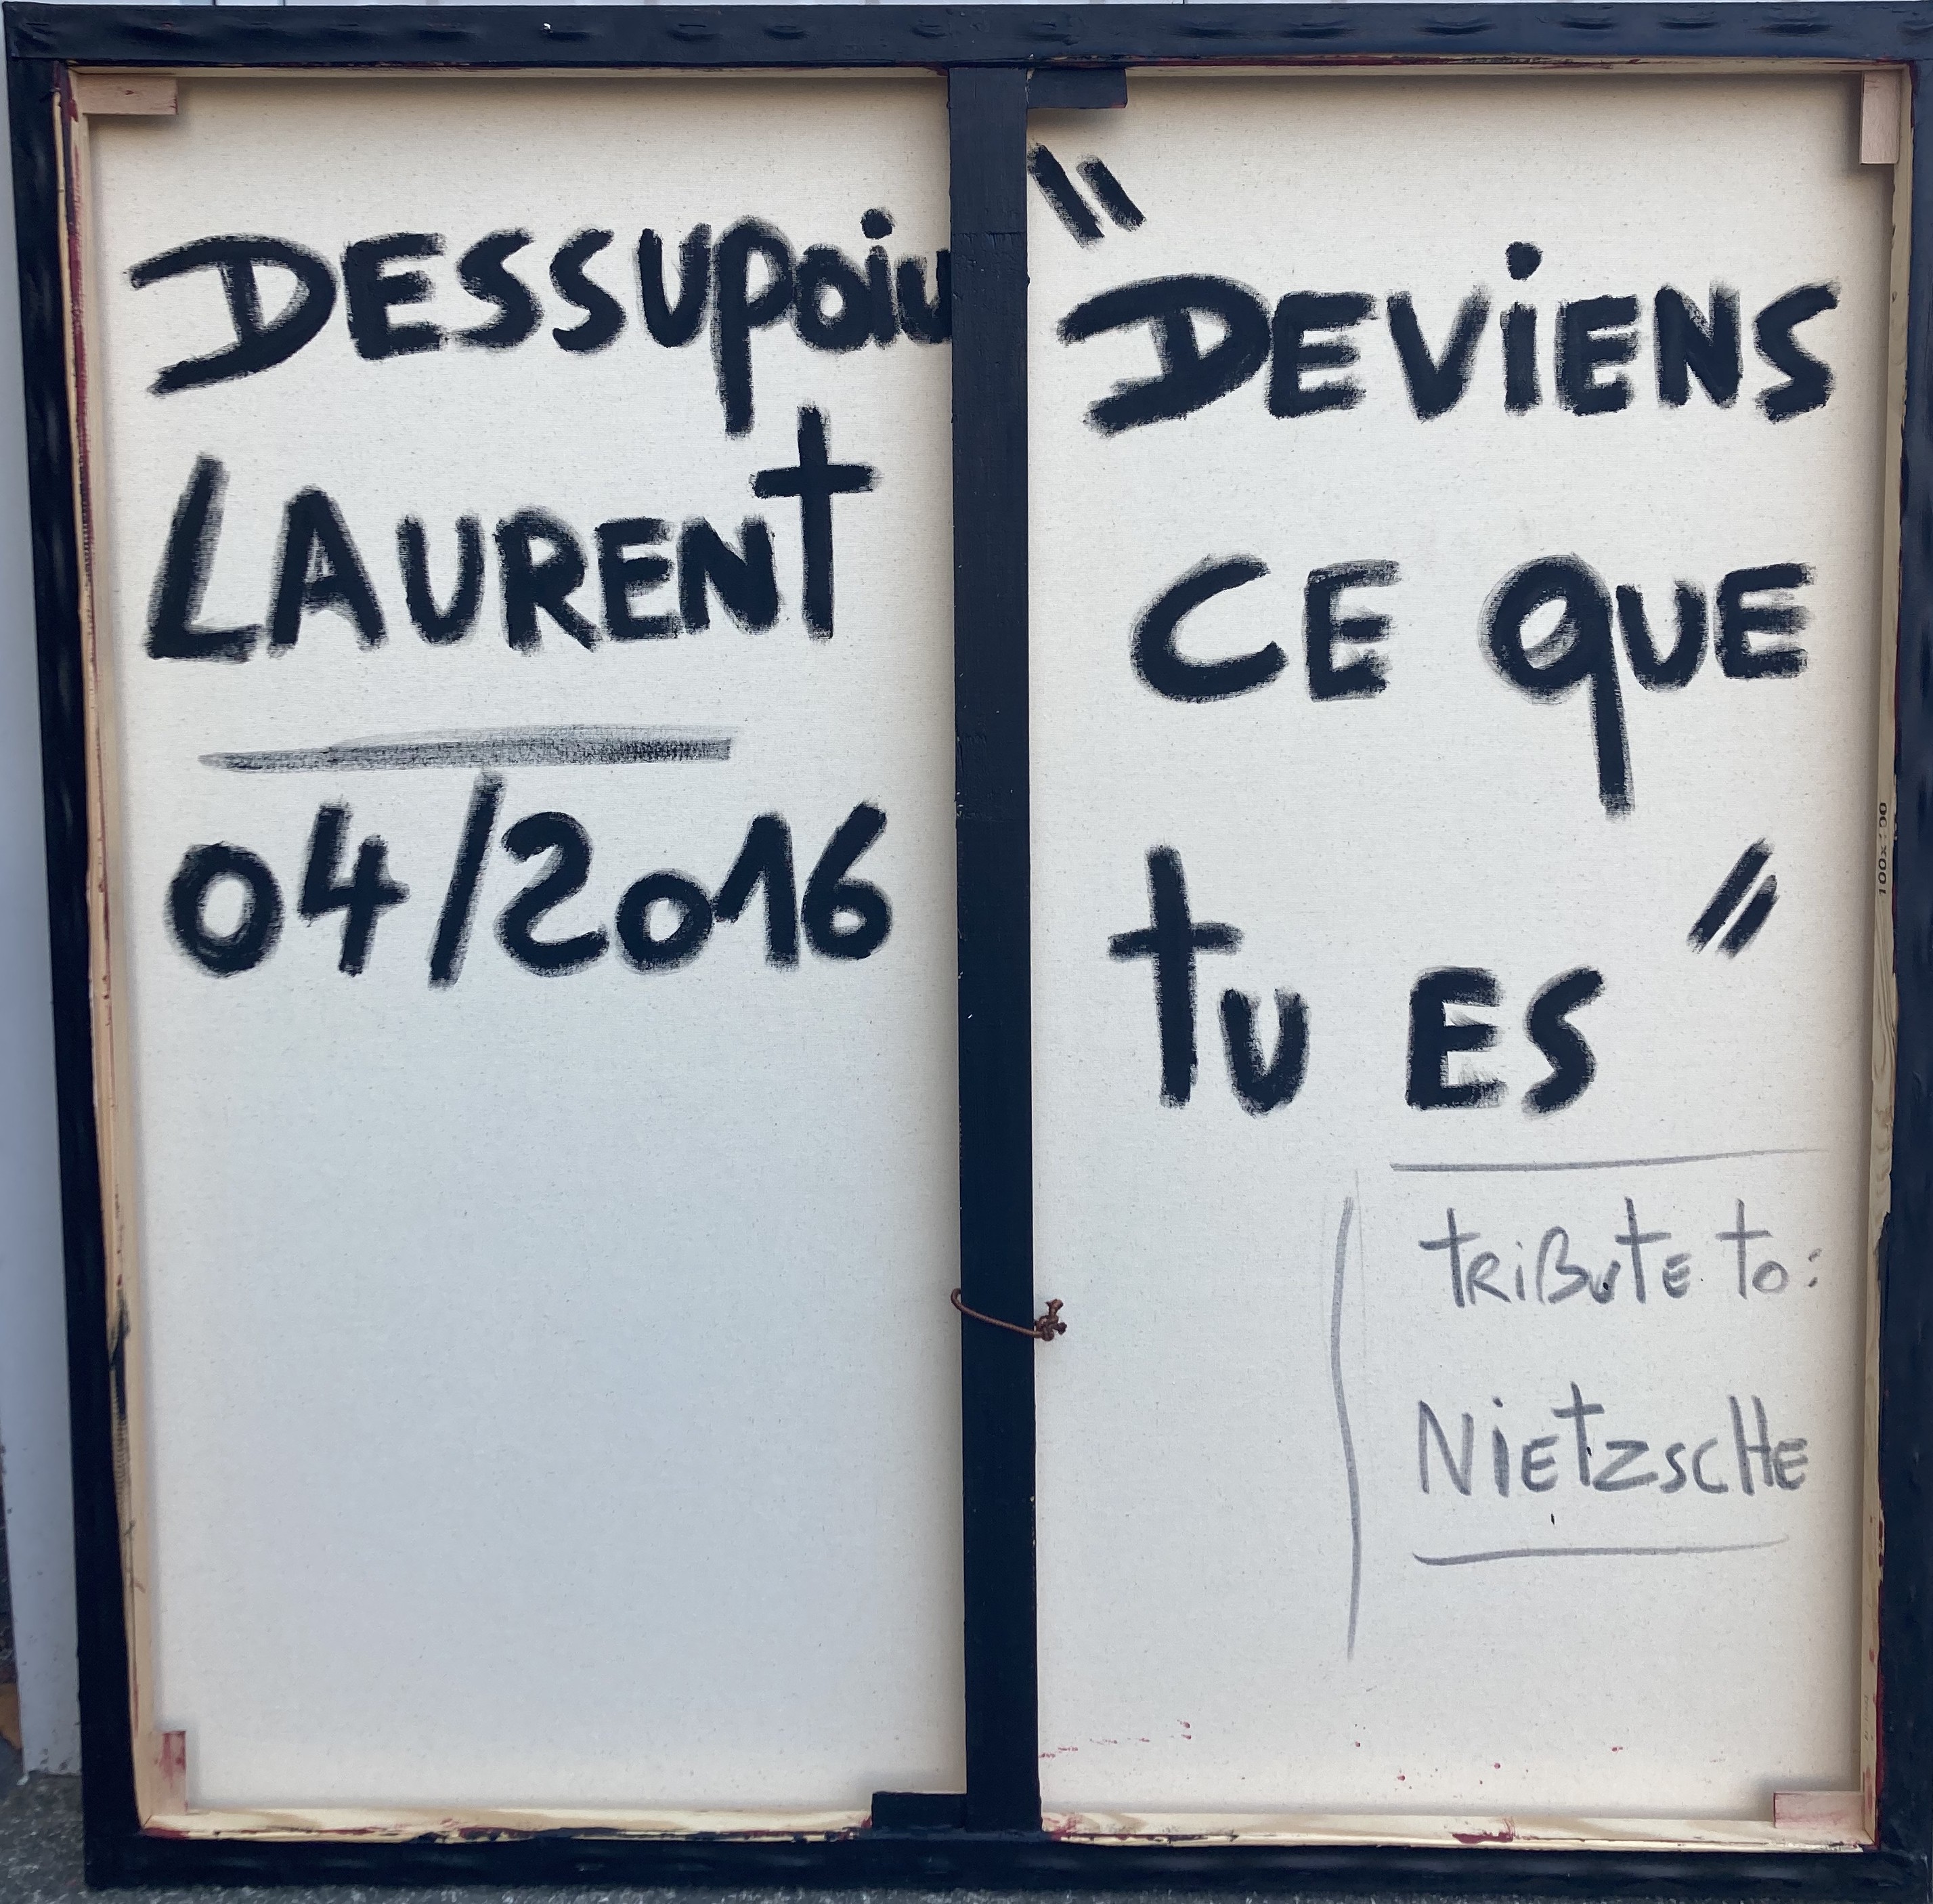 DESSUPOiU
LAURENt
04/2016
"DEViENS
CE qUE
tU ES"
tRiBUtE to:
NiEtZSCHE